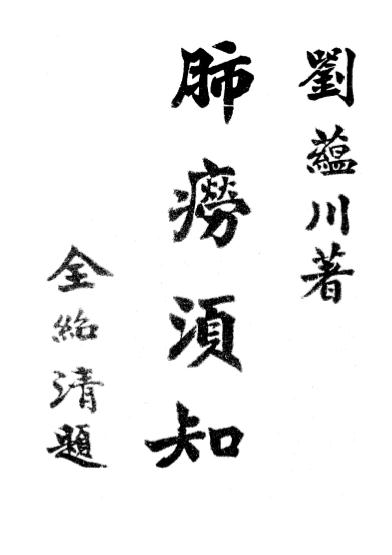 劉蘊川著
肺癆須知
全紹清題